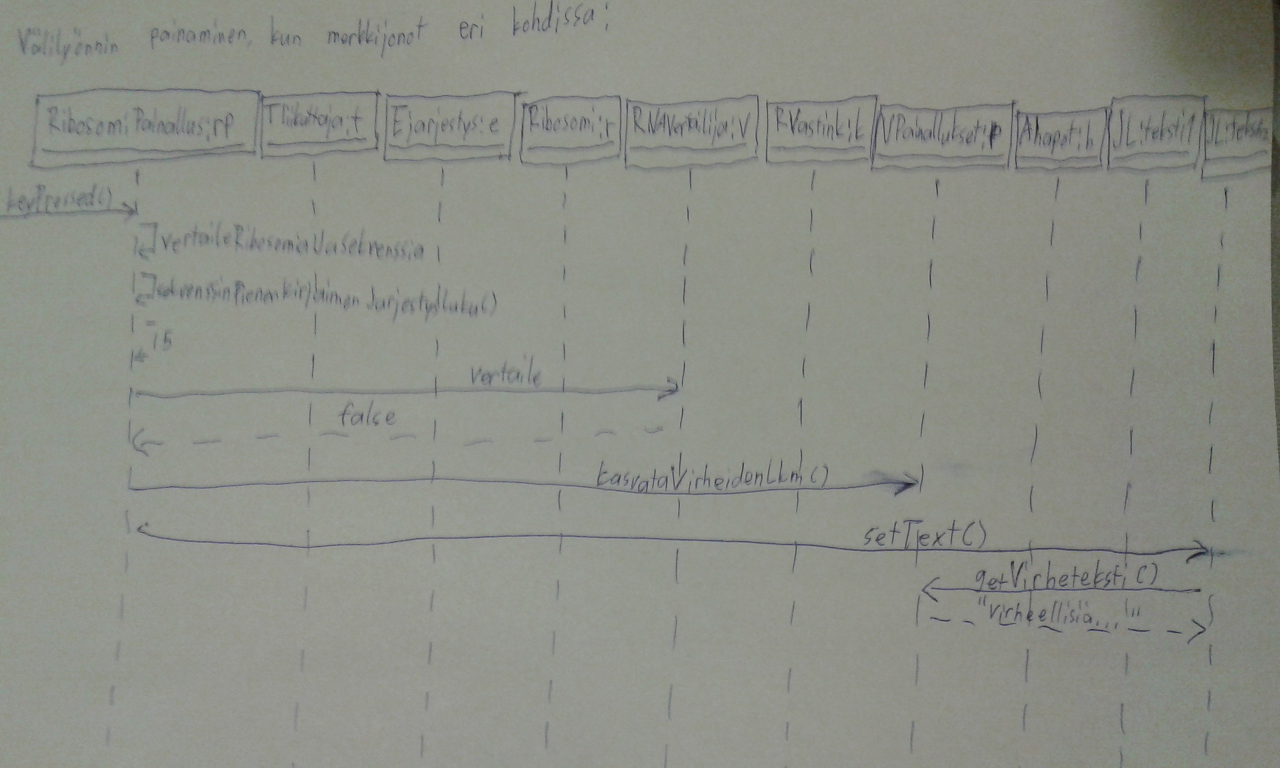 Välilyönnin painaminen, kun merkkijonot eri kohdissa:
RibosomiPainallus:rp Tliikuttaja:t Ejarjestys:e Ribosomi:r RNAVertailija:V RVastink:k VPainallukset:p Ahapot:h JL:teksti1
keyPressed()
vertaileRibosomiaJaSekvenssia
sekvenssinPienenKirjaimenJarjestysluku()
15
vertaile
false
kasvataVirheidenLkm()
setText()
getVirheteksti()
"Virheellisiä..."